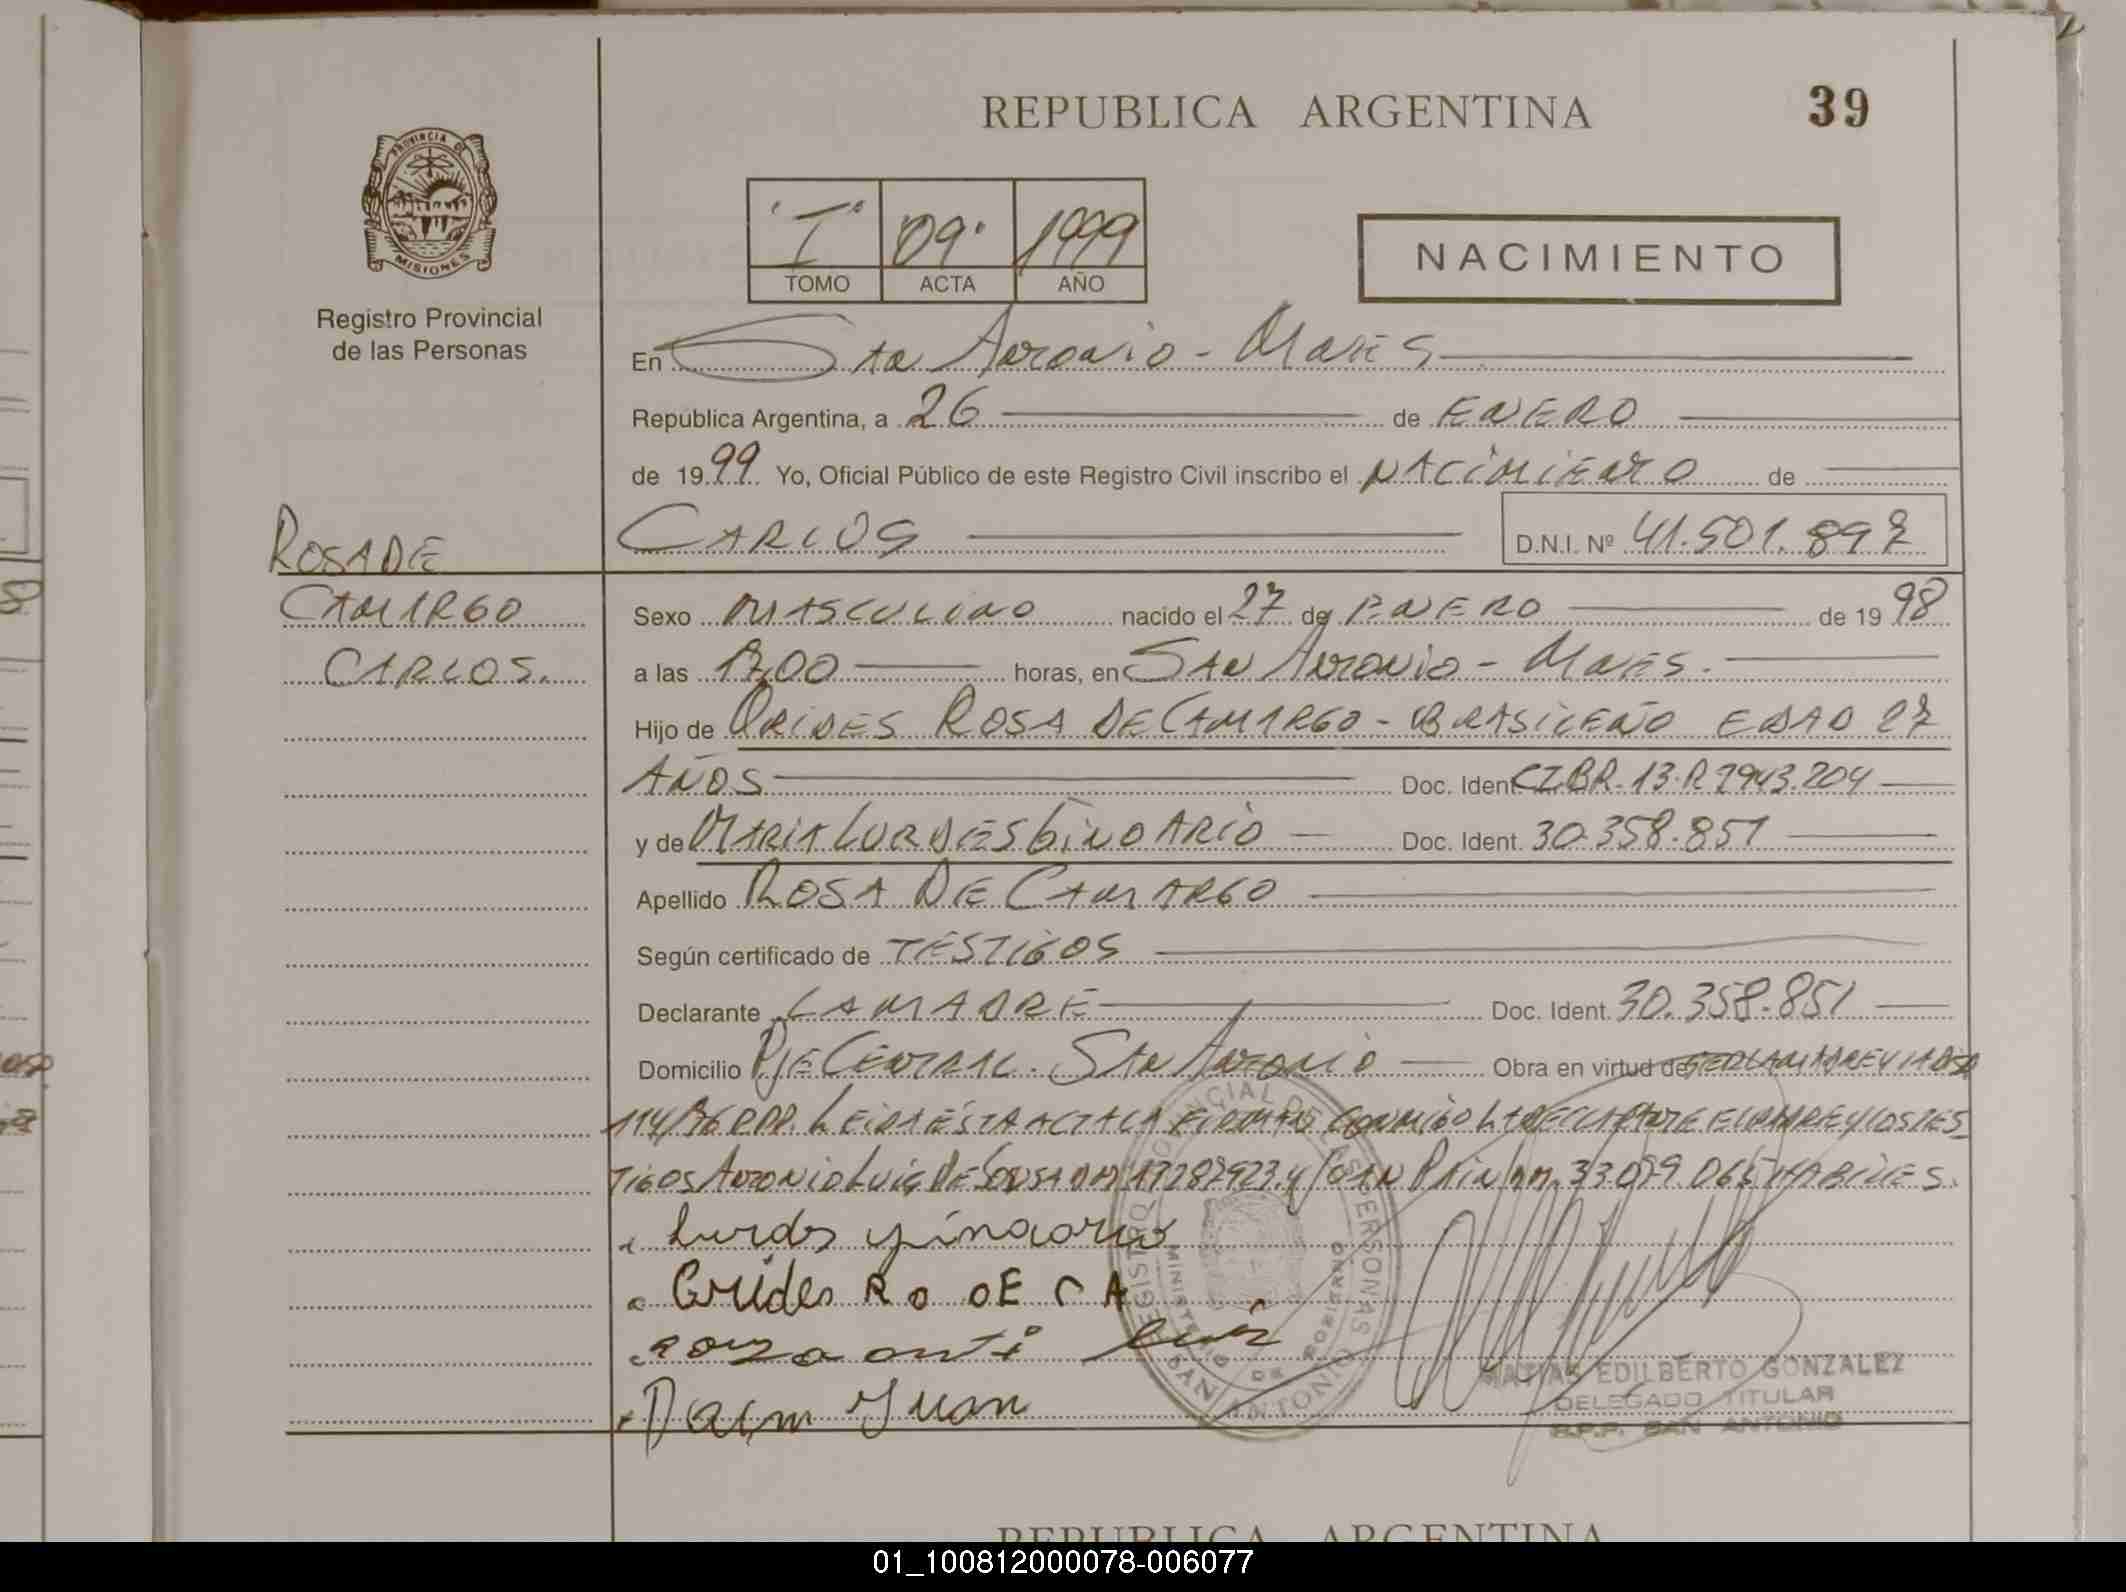 REPUBLICA ARGENTINA
39
PROVINCIA DE
MISIONES
Registro Provincial
de las Personas
"I" 09 1999
TOMO ACTA AÑO
NACIMIENTO
En San Antonio - Mnes
República Argentina, a 26 de ENERO
de 1999 Yo, Oficial Público de este Registro Civil inscribo el NACIMIENTO de
CARLOS D.N.I. Nº 41.501.897
ROSA DE
CAMARGO
CARLOS.
Sexo MASCULINO nacido el 27 de ENERO de 1998
a las 17,00 horas, en SAN ANTONIO - MNES.
Hijo de ORIDES ROSA DE CAMARGO - BRASILEÑO EDAD 27
AÑOS Doc. Ident. CIBR. 13.R 2943.204
y de MARIA LURDES GINOARIO Doc. Ident. 30.358.851
Apellido ROSA DE CAMARGO
Según certificado de TESTIGOS
Declarante LA MADRE Doc. Ident. 30.358.851
Domicilio PJE CENTRAL. SAN ANTONIO Obra en virtud de SER LA MADRE Y LA
114/96 RPP. LEIDA ESTA ACTA LA FIRMAN CONMIGO LA DECLARANTE EL PADRE Y LOS TES_
TIGOS ANTONIO LUIS DE SOUSA DNI 17287923 Y JUAN PAIN DNI. 33079065 HABILES.
Lurdes ginoario
Orides R O DE C A
souza anti luis
Paim Juan
REGISTRO PROVINCIAL DE LAS PERSONAS
MINISTERIO DE GOBIERNO
SAN ANTONIO
MATIAS EDILBERTO GONZALEZ
DELEGADO TITULAR
R.P.P. SAN ANTONIO
REPUBLICA ARGENTINA
01_100812000078-006077